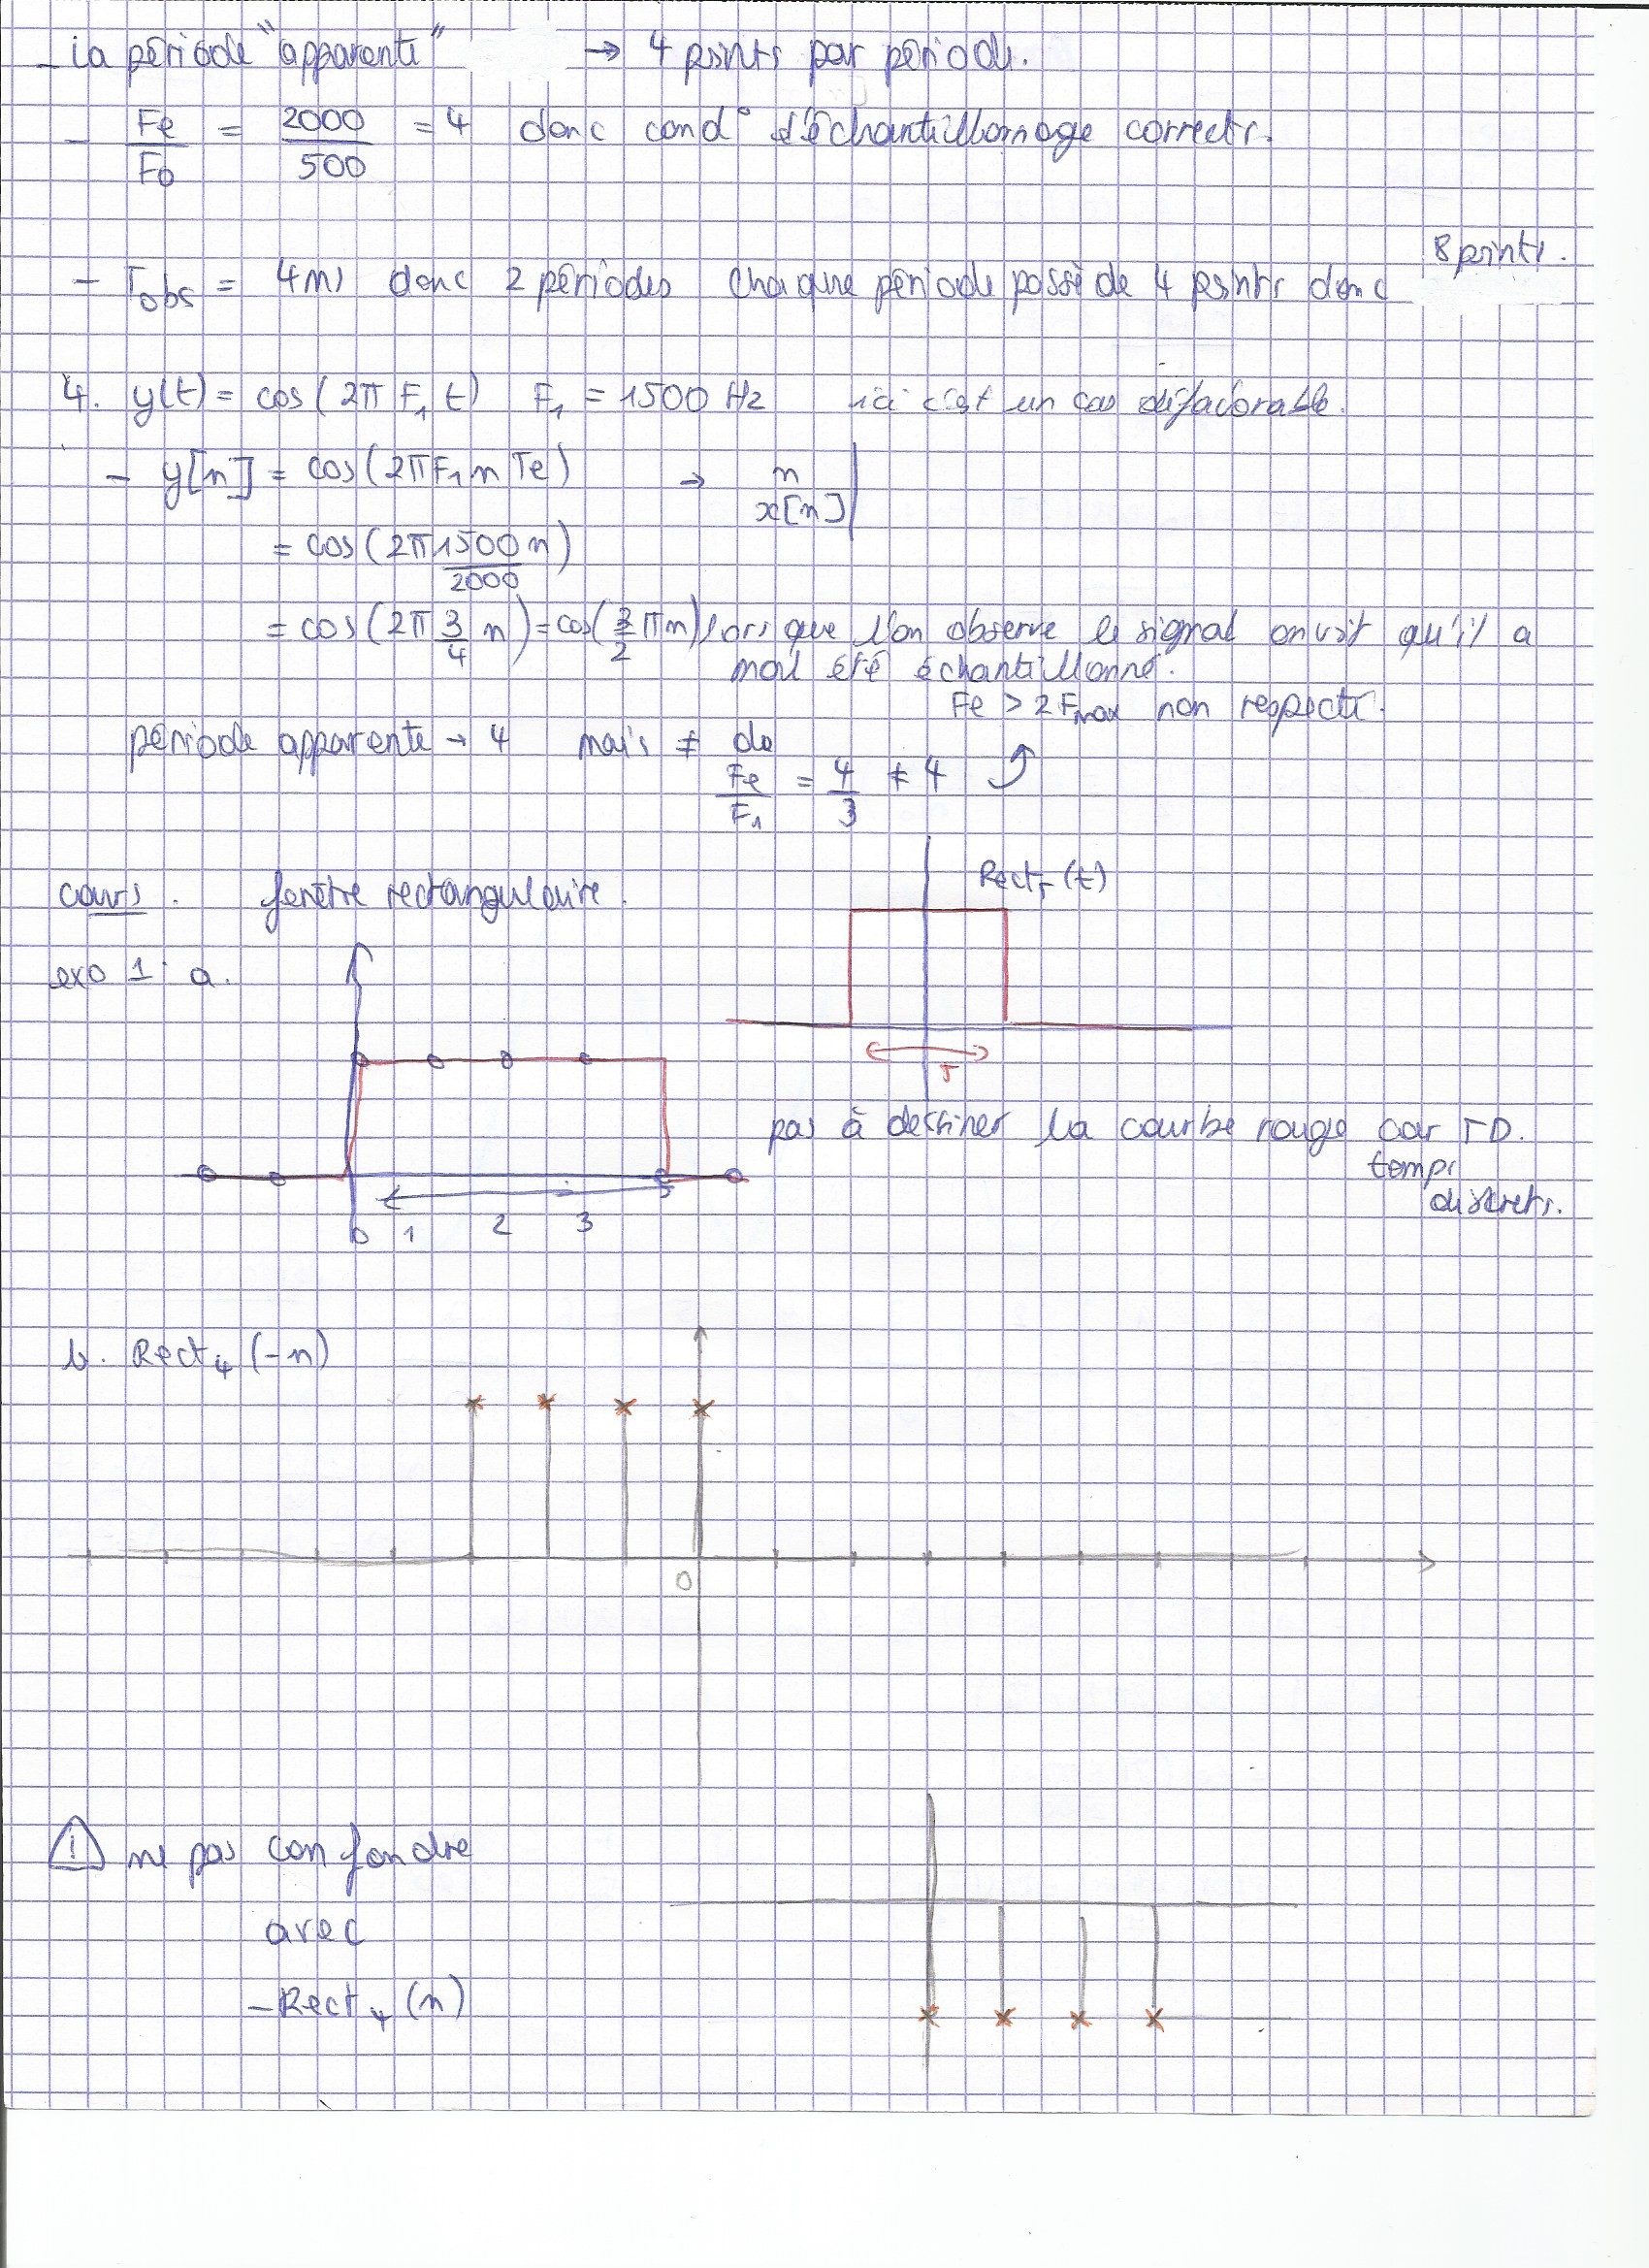 - la période "apparente" → 4 points par période.
- Fe/F0 = 2000/500 = 4 donc cond° d'échantillonnage correcte.
8 points.
- Tobs = 4ms donc 2 périodes chaque période possède 4 points donc
4. y(t) = cos(2π F1 t) F1 = 1500 Hz ici c'est un cas défavorable.
- y[n] = cos(2π F1 n Te) → n
x[n]
= cos(2π 1500/2000 n)
= cos(2π 3/4 n) = cos(3/2 πn) lorsque l'on observe le signal on voit qu'il a
mal été échantillonné.
Fe > 2 Fmax non respecté.
période apparente → 4 mais ≠ de
Fe/F1 = 4/3 ≠ 4
Rect_T(t)
cours. fenêtre rectangulaire.
exo 1: a.
T
pas à dessiner la courbe rouge car TD.
temps
discrets.
0 1 2 3
b. Rect4 (-n)
0
! ne pas confondre
avec
-Rect4 (n)